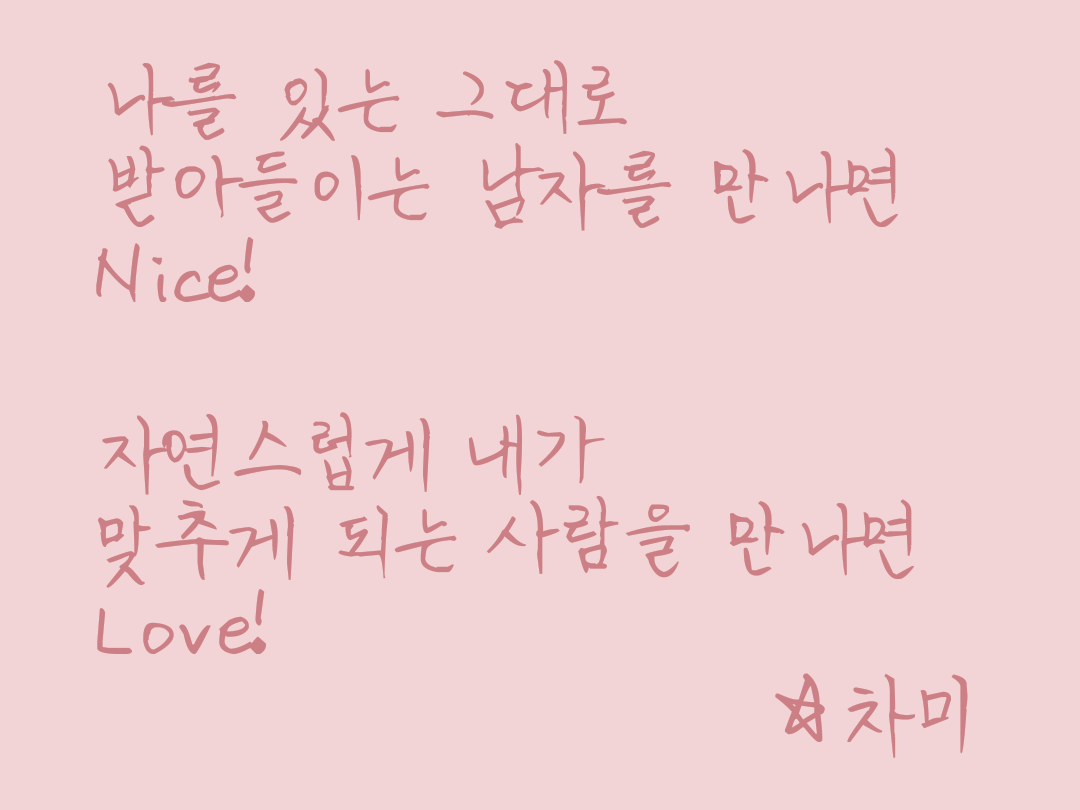 나를 있는 그대로
받아들이는 남자를 만나면
Nice!
자연스럽게 내가
맞추게 되는 사람을 만나면
Love!
☆차미